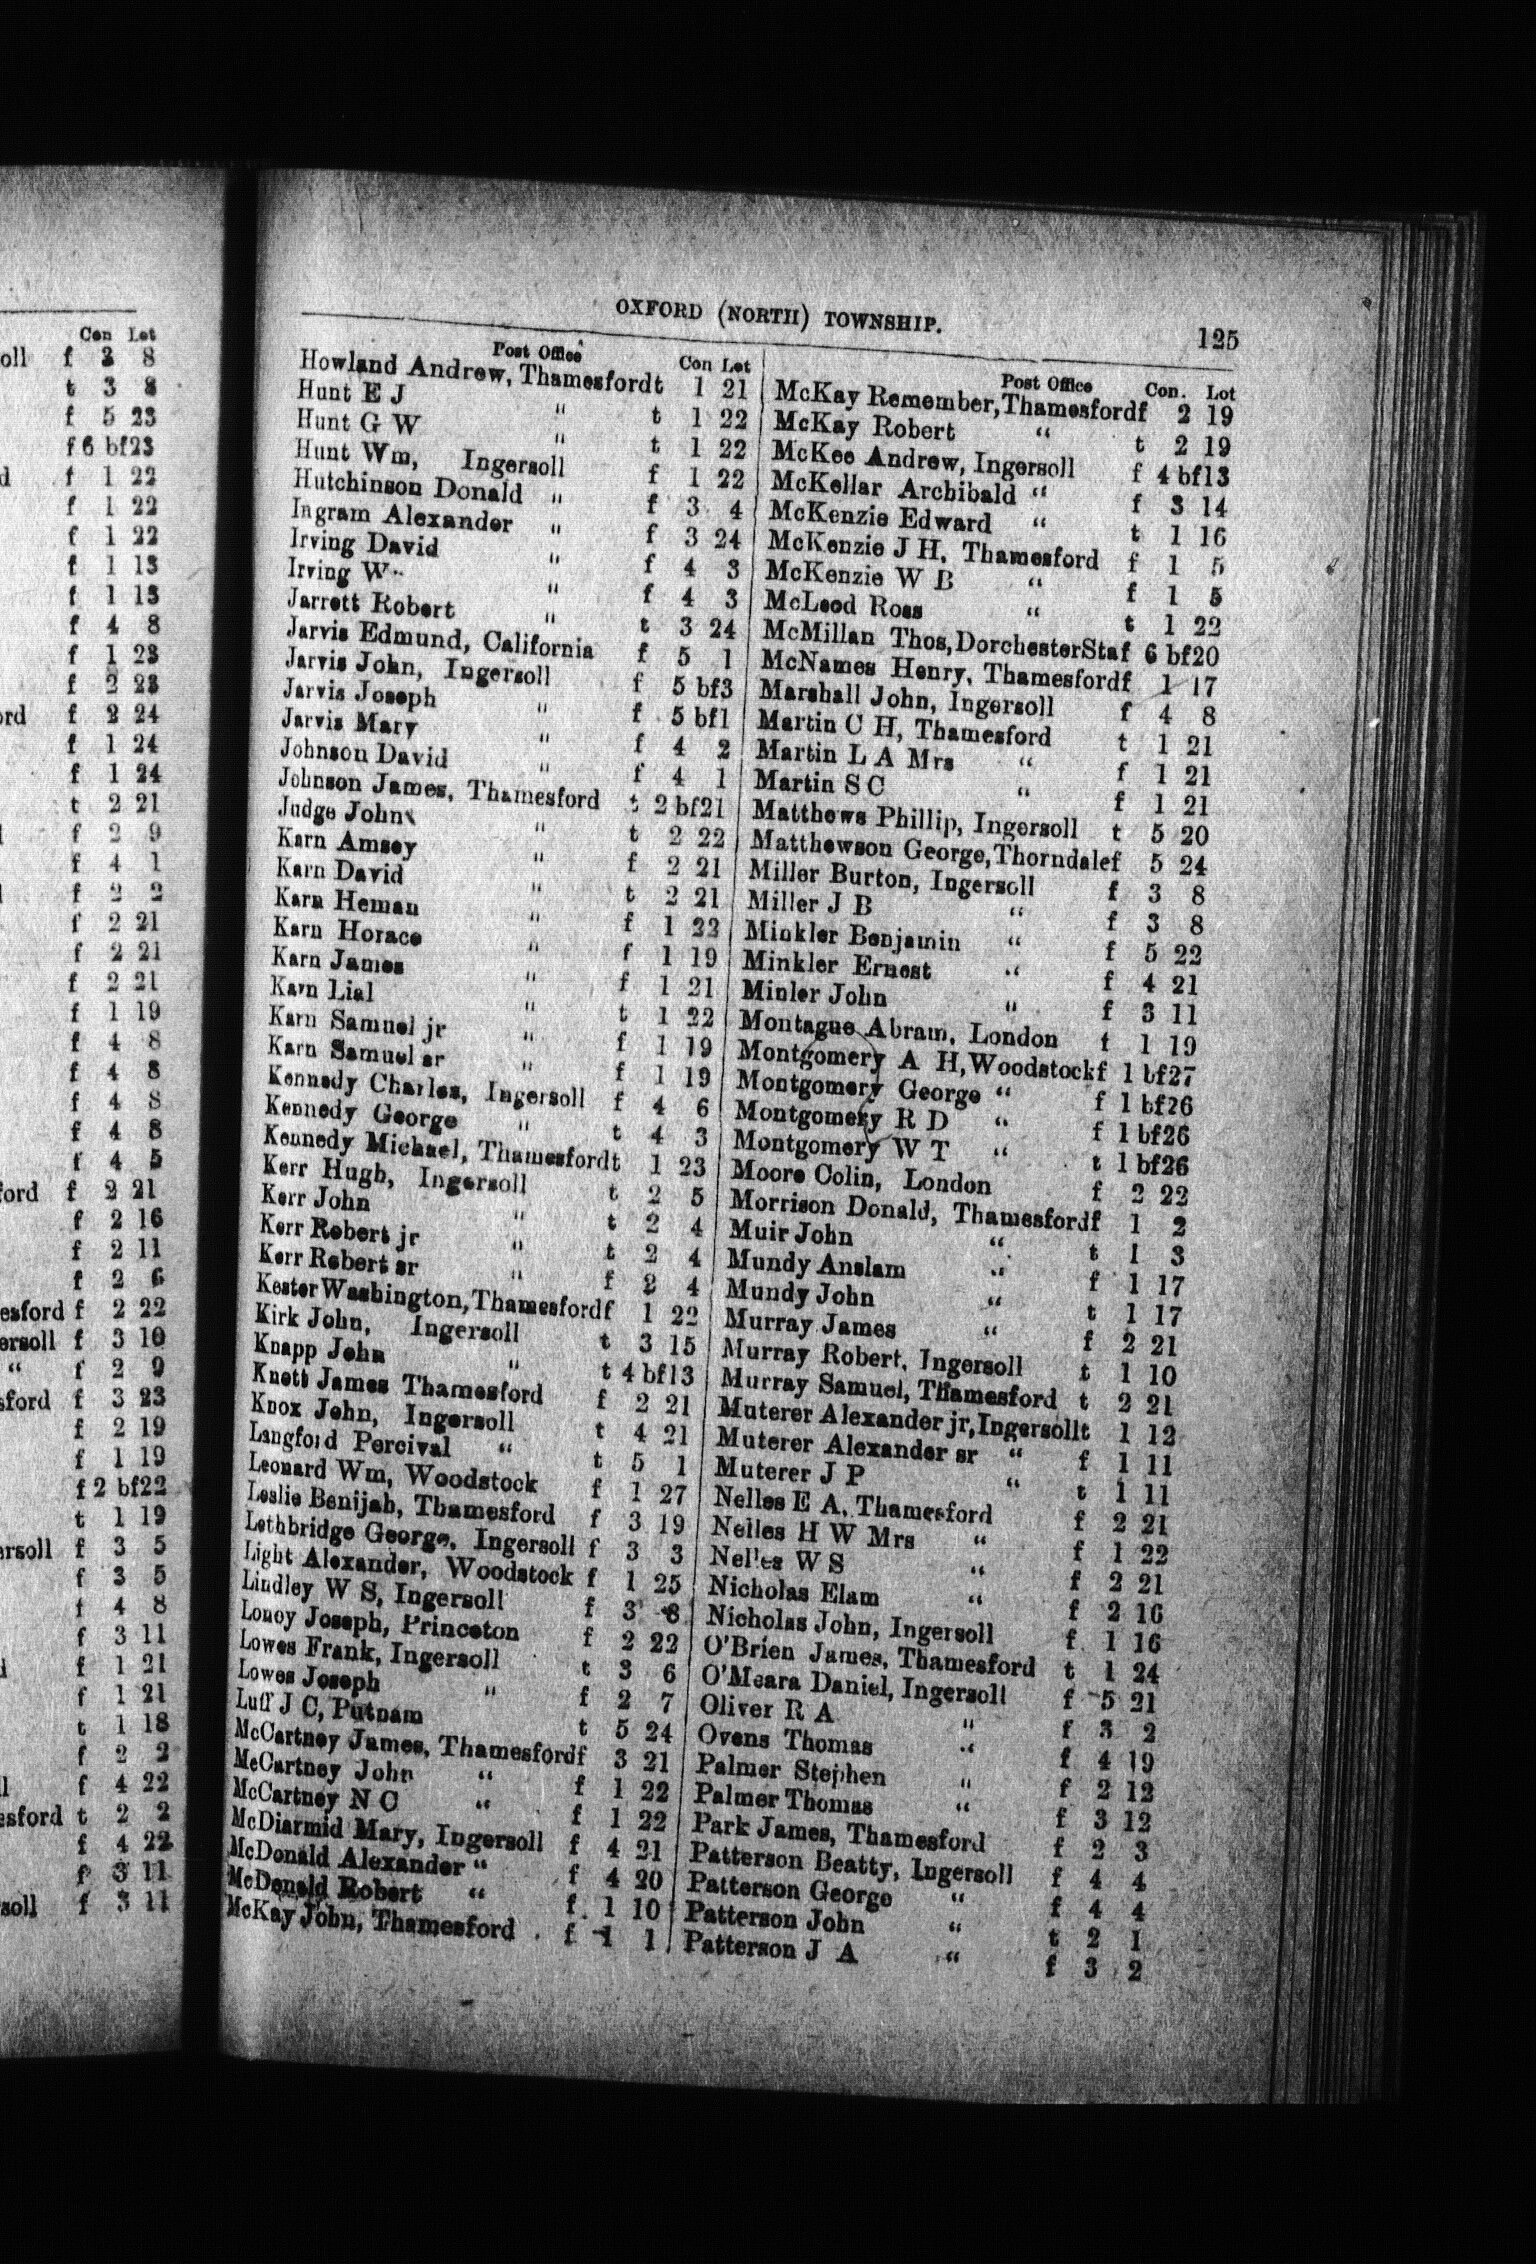 Con Lot
oll f 3 8
t 3 8
f 5 23
f 6 bf23
d f 1 22
f 1 22
f 1 22
f 1 13
f 1 13
f 4 8
f 1 23
f 2 23
ord f 2 24
f 1 24
f 1 24
t 2 21
l f 2 9
f 4 1
l f 2 2
f 2 21
f 2 21
f 2 21
f 1 19
f 4 8
f 4 8
f 4 8
f 4 8
f 4 5
ford f 2 21
f 2 16
f 2 11
f 2 6
esford f 2 22
ersoll f 3 10
“ f 2 9
sford f 3 23
f 2 19
f 1 19
f 2 bf22
t 1 19
ersoll f 3 5
f 3 5
f 4 8
f 3 11
f 1 21
f 1 21
t 1 18
f 2 2
ll f 4 22
esford t 2 2
f 4 22
f 3 11
soll f 3 11
OXFORD (NORTH) TOWNSHIP. 125
Post Office Con Lot
Howland Andrew, Thamesford t 1 21
Hunt E J " t 1 22
Hunt G W " t 1 22
Hunt Wm, Ingersoll f 1 22
Hutchinson Donald " f 3 4
Ingram Alexander " f 3 24
Irving David " f 4 3
Irving W " f 4 3
Jarrett Robert " t 3 24
Jarvis Edmund, California f 5 1
Jarvis John, Ingersoll f 5 bf3
Jarvis Joseph " f 5 bf1
Jarvis Mary " f 4 2
Johnson David " f 4 1
Johnson James, Thamesford t 2 bf21
Judge John " t 2 22
Karn Amsey " f 2 21
Karn David " t 2 21
Karn Heman " f 1 22
Karn Horace " f 1 19
Karn James " f 1 21
Karn Lial " t 1 22
Karn Samuel jr " f 1 19
Karn Samuel sr " f 1 19
Kennedy Charles, Ingersoll f 4 6
Kennedy George " t 4 3
Kennedy Michael, Thamesford t 1 23
Kerr Hugh, Ingersoll t 2 5
Kerr John " t 2 4
Kerr Robert jr " t 2 4
Kerr Robert sr " f 2 4
Kester Washington, Thamesford f 1 22
Kirk John, Ingersoll t 3 15
Knapp John " t 4 bf13
Knett James Thamesford f 2 21
Knox John, Ingersoll t 4 21
Langford Percival “ t 5 1
Leonard Wm, Woodstock f 1 27
Leslie Benijah, Thamesford f 3 19
Lethbridge George, Ingersoll f 3 3
Light Alexander, Woodstock f 1 25
Lindley W S, Ingersoll f 3 8
Loney Joseph, Princeton f 2 22
Lowes Frank, Ingersoll t 3 6
Lowes Joseph " f 2 7
Luff J C, Putnam t 5 24
McCartney James, Thamesford f 3 21
McCartney John “ f 1 22
McCartney N C “ f 1 22
McDiarmid Mary, Ingersoll f 4 21
McDonald Alexander “ f 4 20
McDonald Robert “ f 1 10
McKay John, Thamesford f 1 1
Post Office Con. Lot
McKay Remember, Thamesford f 2 19
McKay Robert “ t 2 19
McKee Andrew, Ingersoll f 4 bf13
McKellar Archibald “ f 3 14
McKenzie Edward “ t 1 16
McKenzie J H, Thamesford f 1 5
McKenzie W B “ f 1 5
McLeod Ross “ t 1 22
McMillan Thos, Dorchester Sta f 6 bf20
McNames Henry, Thamesford f 1 17
Marshall John, Ingersoll f 4 8
Martin C H, Thamesford t 1 21
Martin L A Mrs “ f 1 21
Martin S C “ f 1 21
Matthews Phillip, Ingersoll t 5 20
Matthewson George, Thorndale f 5 24
Miller Burton, Ingersoll f 3 8
Miller J B “ f 3 8
Minkler Benjamin “ f 5 22
Minkler Ernest “ f 4 21
Minler John “ f 3 11
Montague Abram, London t 1 19
Montgomery A H, Woodstock f 1 bf27
Montgomery George “ f 1 bf26
Montgomery R D “ f 1 bf26
Montgomery W T “ t 1 bf26
Moore Colin, London f 2 22
Morrison Donald, Thamesford f 1 2
Muir John “ t 1 3
Mundy Anslam “ f 1 17
Mundy John “ t 1 17
Murray James “ f 2 21
Murray Robert, Ingersoll t 1 10
Murray Samuel, Thamesford t 2 21
Muterer Alexander jr, Ingersoll t 1 12
Muterer Alexander sr “ f 1 11
Muterer J P “ t 1 11
Nelles E A, Thamesford f 2 21
Nelles H W Mrs “ f 1 22
Nelles W S “ f 2 21
Nicholas Elam “ f 2 16
Nicholas John, Ingersoll f 1 16
O'Brien James, Thamesford t 1 24
O'Meara Daniel, Ingersoll f 5 21
Oliver R A “ f 3 2
Ovens Thomas “ f 4 19
Palmer Stephen “ f 2 12
Palmer Thomas “ f 3 12
Park James, Thamesford f 2 3
Patterson Beatty, Ingersoll f 4 4
Patterson George “ f 4 4
Patterson John “ t 2 1
Patterson J A “ f 3 2